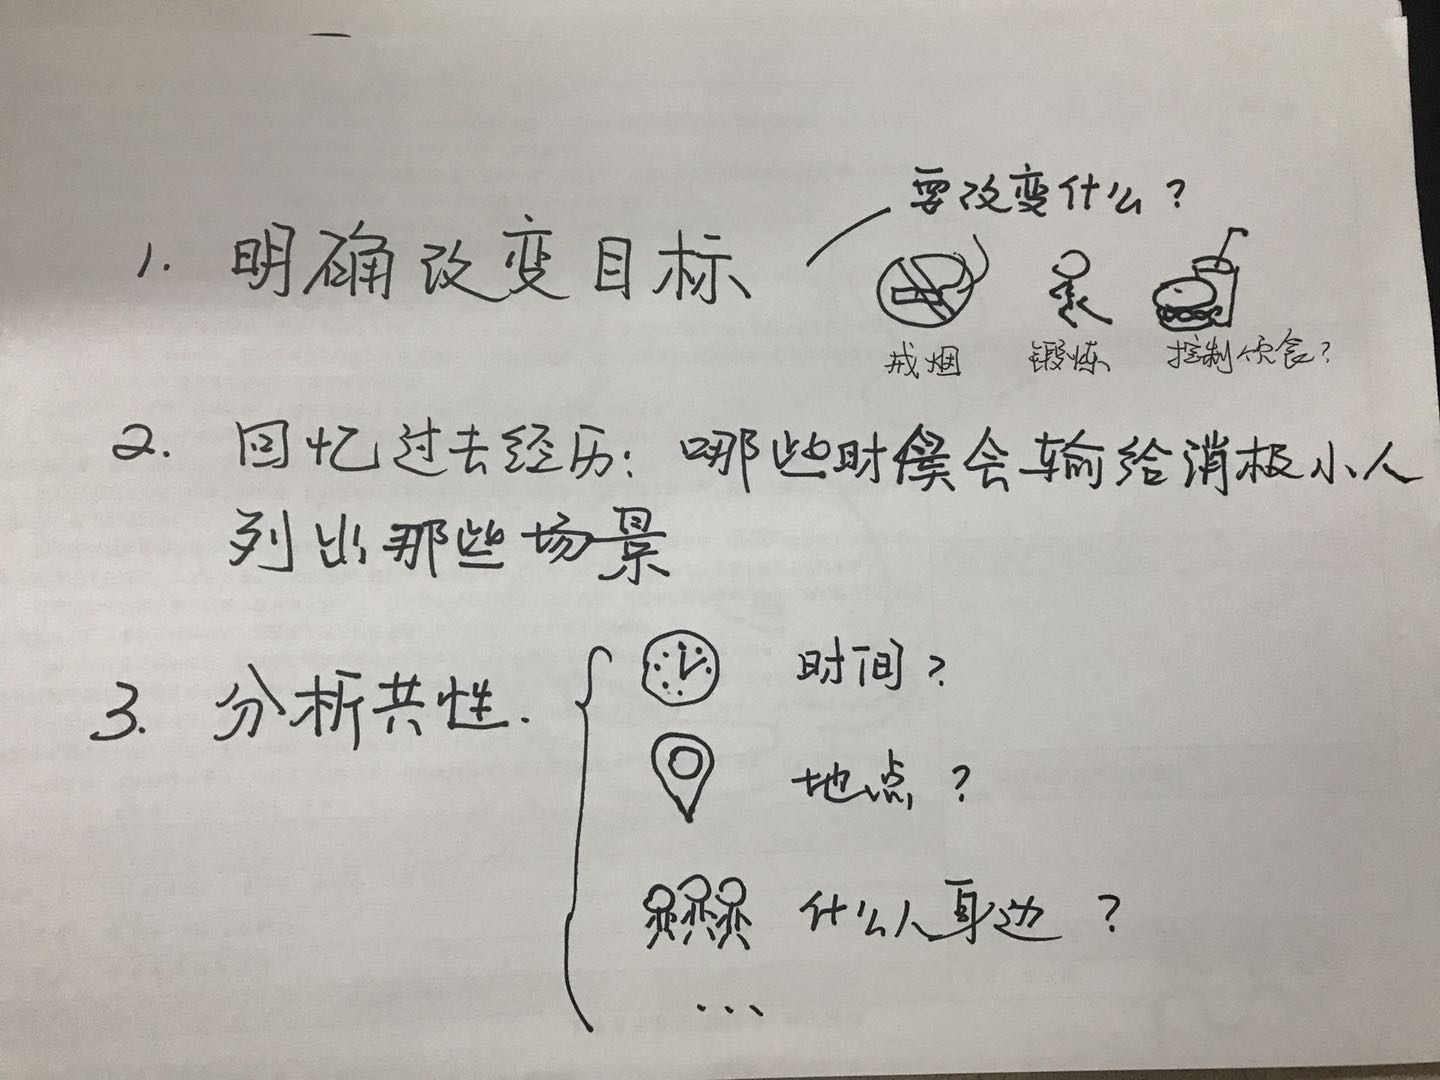 要改变什么?
1. 明确改变目标
戒烟 锻炼 控制饮食?
2. 回忆过去经历: 哪些时候会输给消极小人
列出那些场景
3. 分析共性.
时间?
地点?
什么人身边?
...